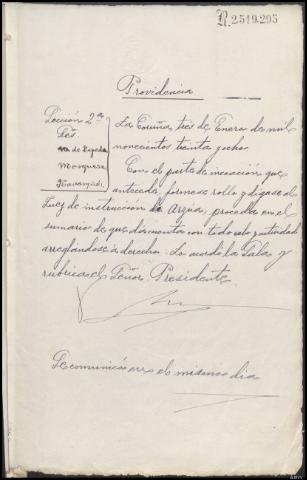 R.2519.295
Providencia
Sección 2ª
Srs
de Cepeda
Mosquera
La Coruña, tres de Enero de mil
novecientos treinta y ocho
Con el parte de incoación que
antecede, fórmese rollo y dígase al
Juez de instrucción de Arzúa, proceda en el
sumario de que da cuenta con todo celo y actividad
arreglándose a derecho. Lo acordó la Sala y
rubrica el Señor Presidente.
Se comunicó en el mismo día